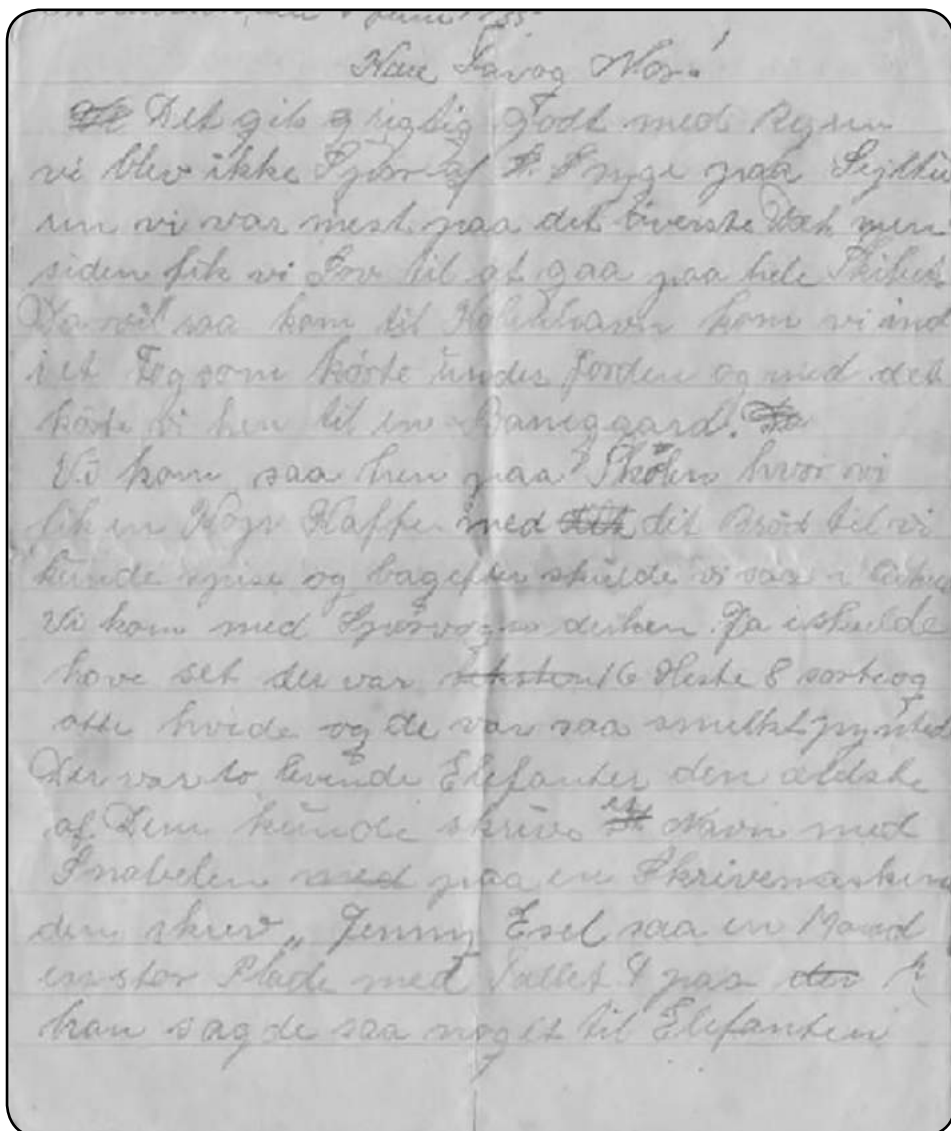 Juni 1935
Kære Far og Mor!
Det gik rigtig godt med Rejsen
vi blev ikke Spor af Syge paa Sejltu
ren vi var mest paa det överste Dæk men
siden fik vi Lov til at gaa paa hele Skibet.
Da vi saa kom til Köbenhavn kom vi ind
i et Tog som körte under Jorden og med det
körte vi hen til en Banegaard.
Vi kom saa hen paa Skolen hvor vi
fik en Kop Kaffe med det Bröd til vi
kunde spise og bagefter skulde vi saa i
Vi kom med Sporvogn derhen. Ja i skulde
have set der var seksten 16 Heste 8 sorte og
otte hvide og de var saa smukt pyntet
Der var to levende Elefanter den ældste
af Dem kunde skrive Navn med
Snabelen med paa en Skrivemaskine
den skrev „Jenny Esel saa en Mand
en stor Plade med Tallet paa der
han sagde saa noget til Elefanten